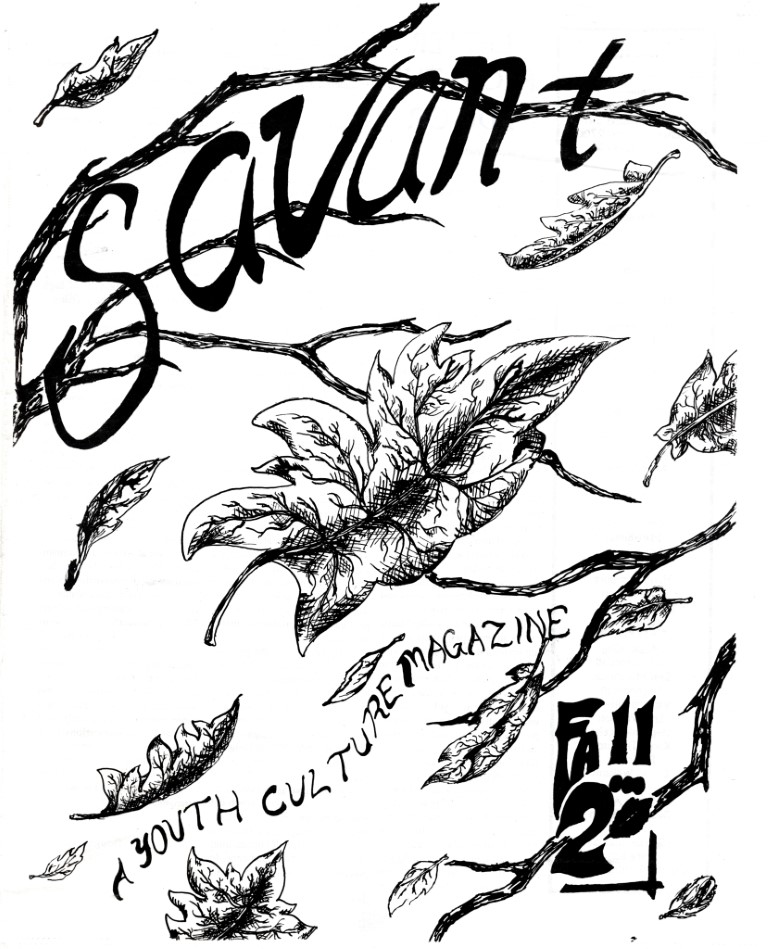 savant
A YOUTH CULTURE MAGAZINE
FAll